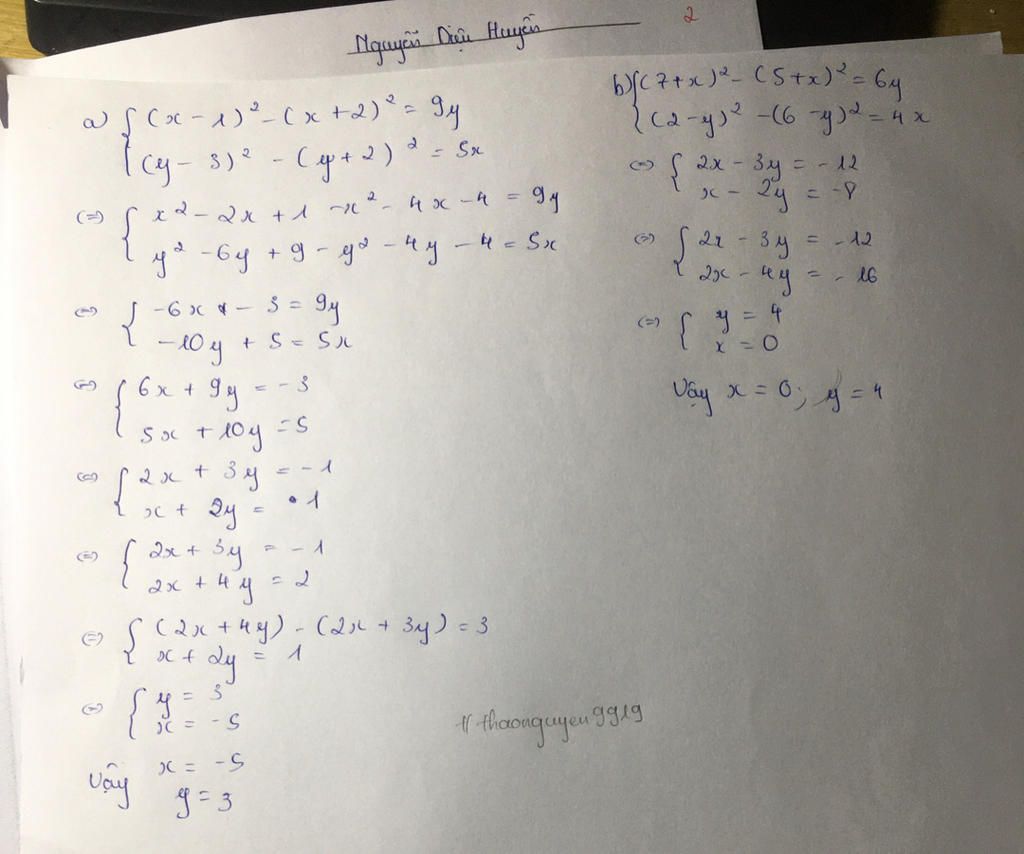 Nguyễn Diệu Huyền
2
a) { (x - 1)² - (x + 2)² = 9y
(y - 3)² - (y + 2)² = 5x
(=) { x² - 2x + 1 - x² - 4x - 4 = 9y
y² - 6y + 9 - y² - 4y - 4 = 5x
(=) { -6x - 3 = 9y
-10y + 5 = 5x
(=) { 6x + 9y = -3
5x + 10y = 5
(=) { 2x + 3y = -1
x + 2y = 1
(=) { 2x + 3y = -1
2x + 4y = 2
(=) { (2x + 4y) - (2x + 3y) = 3
x + 2y = 1
(=) { y = 3
x = -5
Vậy x = -5
y = 3
b) { (7+x)² - (5+x)² = 6y
(2-y)² - (6-y)² = 4x
(=) { 2x - 3y = -12
x - 2y = -8
(=) { 2x - 3y = -12
2x - 4y = -16
(=) { y = 4
x = 0
Vậy x = 0; y = 4
# thaonguyen9919